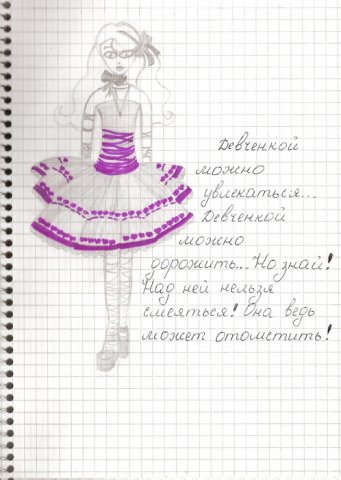 Девченкой
можно
увлекаться...
Девченкой
можно
дорожить... Но знай!
Над ней нельзя
смеяться! Она ведь
может отомстить!